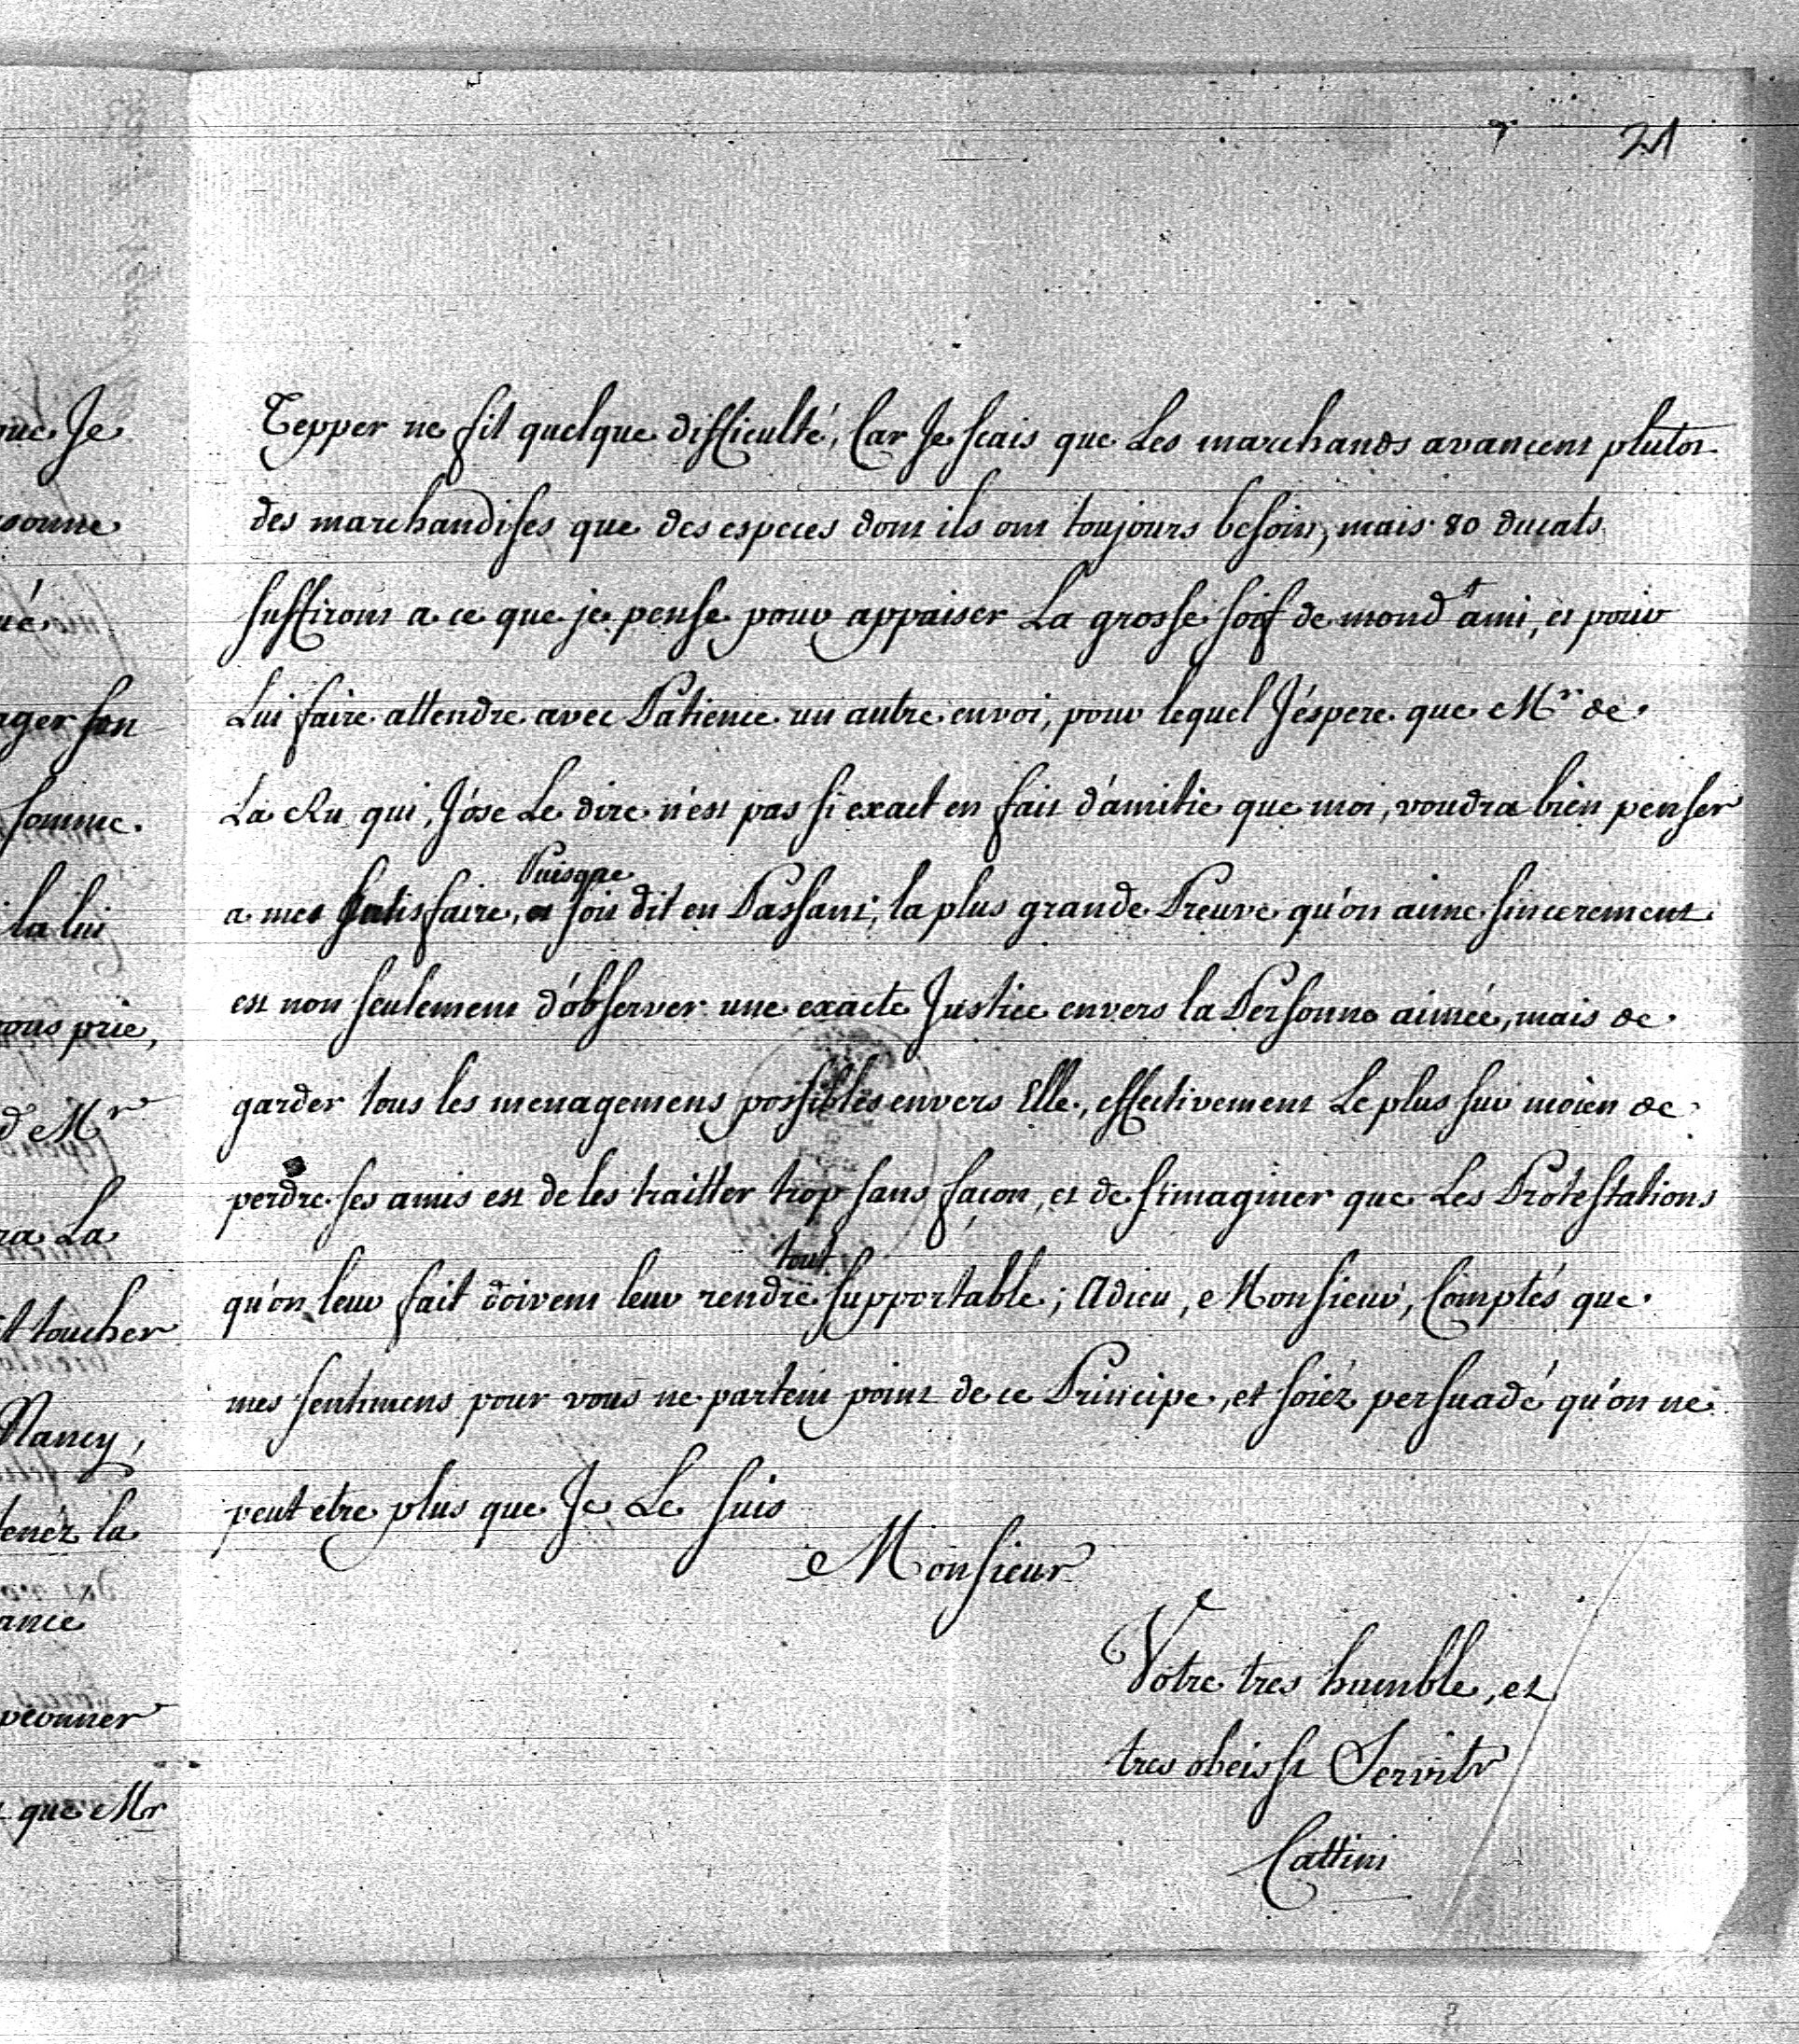 21
Tepper ne fit quelque difficulté, Car Je scais que Les marchands avancent plutot
des marchandises que des especes dont ils ont toujours besoin, mais 80 ducats
suffiront a ce que je pense pour appaiser La grosse soif de mond. ami, et pour
Lui faire attendre avec Patience un autre envoi, pour lequel J'éspere que Mr. de
La Ru qui, J'ose Le dire n'est pas si exact en fait d'amitie que moi, voudra bien penser
Puisque
a me satisfaire, soit dit en Passant, la plus grande Preuve qu'on aime sincerement
est non seulement d'observer une exacte Justice envers la Personne aimée, mais de
garder tous les menagemens possibles envers Elle, effectivement Le plus sur moien de
perdre ses amis est de les traitter trop sans façon, et de s'imaginer que Les Protestations
tout
qu'on leur fait doivent leur rendre supportable; Adieu, Monsieur, Comptés que
mes sentimens pour vous ne partent point de ce Principe, et soiéz persuadé qu'on ne
peut etre plus que Je Le suis
Monsieur
Votre tres humble, et
tres obeisst Servitr
Cattini
que Je
sonne
ager son
somme.
la lui
vous prie,
d Mr
ra La
il toucher
Nancy,
tenez la
ance
que Mr